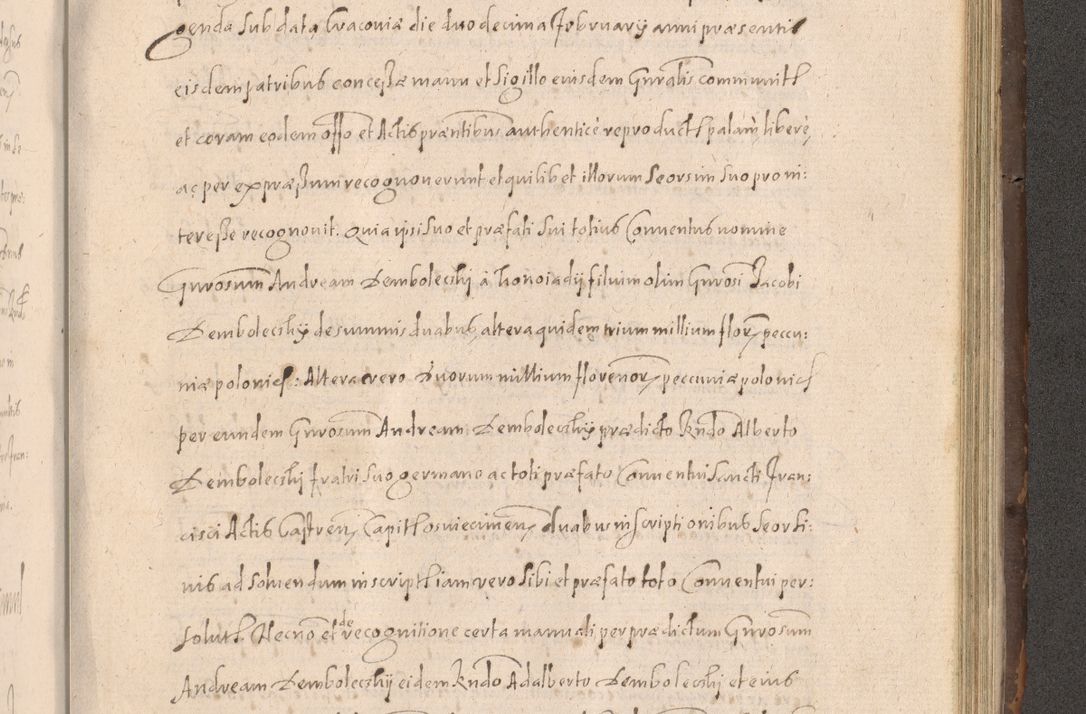 genda sub data Cracoviæ die duodecima February anni præsentis
eisdem patribus concessæ manu et Sigillo eiusdem Gnralis communit
et coram eodem offo et Actis præntibus authenticè reproduct palam, liberè,
ac per expræssum recognoverunt et quilibet illorum Seorsim suo pro ni:
teresse recognovit. Quia ipsi suo et præfati Sui totius Conventus nomine
Gnrosum Andream Dembolecskij à filium olim Gnrosi Jacobi
Dembolecsky de summis duabus, altera quidem trium millium flor, peccu:
niæ polonic: Altera vero Duorum millium florenor, peccuniæ polonic
per eundem Gnrosum Andream Dembolecsky prædicto Rndo Alberto
Dembolecskij fratri suo germano ac toti præfato Conventui Sancti Fran:
cisci Actis Castren, Capit osviecimen, duabus inscriptionibus Seorsi:
vis ad Solvendum inscript iam vero Sibi et præfato toto Conventui per:
solut Necnō et de recognitione certa manuali per prædictum Gnrosum
Andream Dembolecskij eidem Rndo Adalberto Dembolecskij et eius